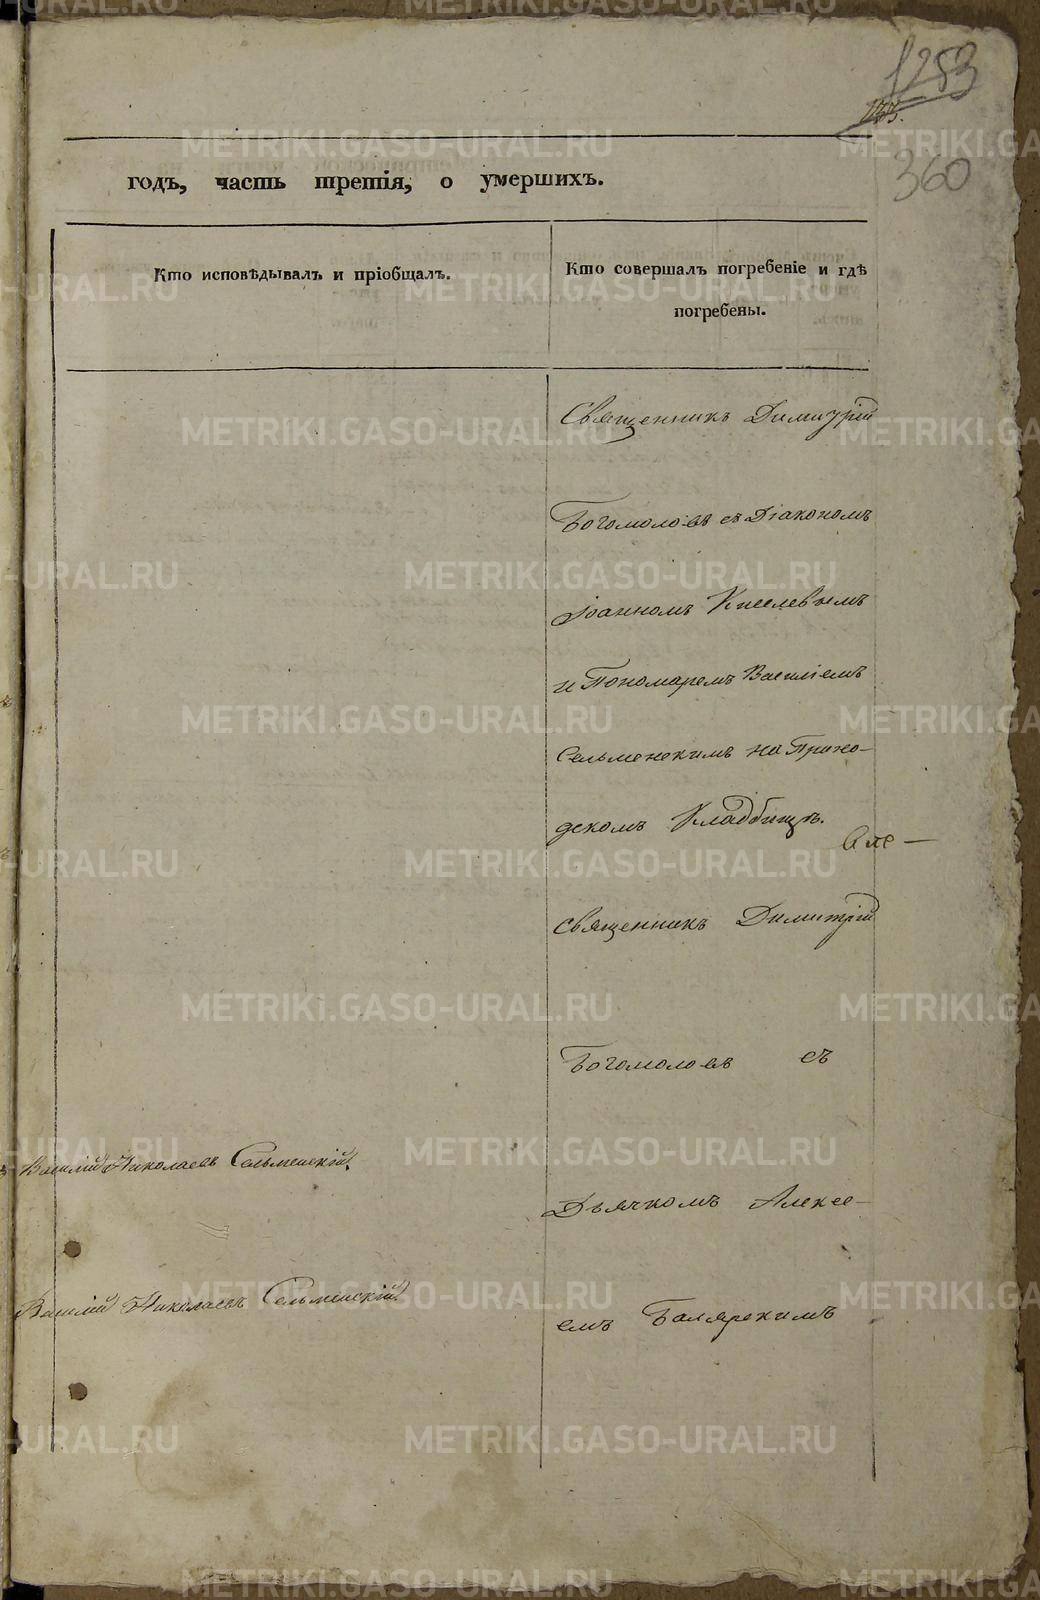 1253
360
годъ, часть третія, о умершихъ.
Кто исповѣдывалъ и пріобщалъ.
Кто совершалъ погребеніе и гдѣ
погребены.
Священникъ Димитрій
Богомоловъ съ Діакономъ
Іоанномъ Киселевымъ
и Пономаремъ Василіемъ
Сельменскимъ на Прихо-
дскомъ Кладбищѣ.
Священникъ Димитрій
Богомоловъ съ
Василій Николаевъ Сельменскій.
Дьячкомъ Алексе-
Василій Николаевъ Сельменскій
емъ Болярскимъ
METRIKI.GASO-URAL.RU